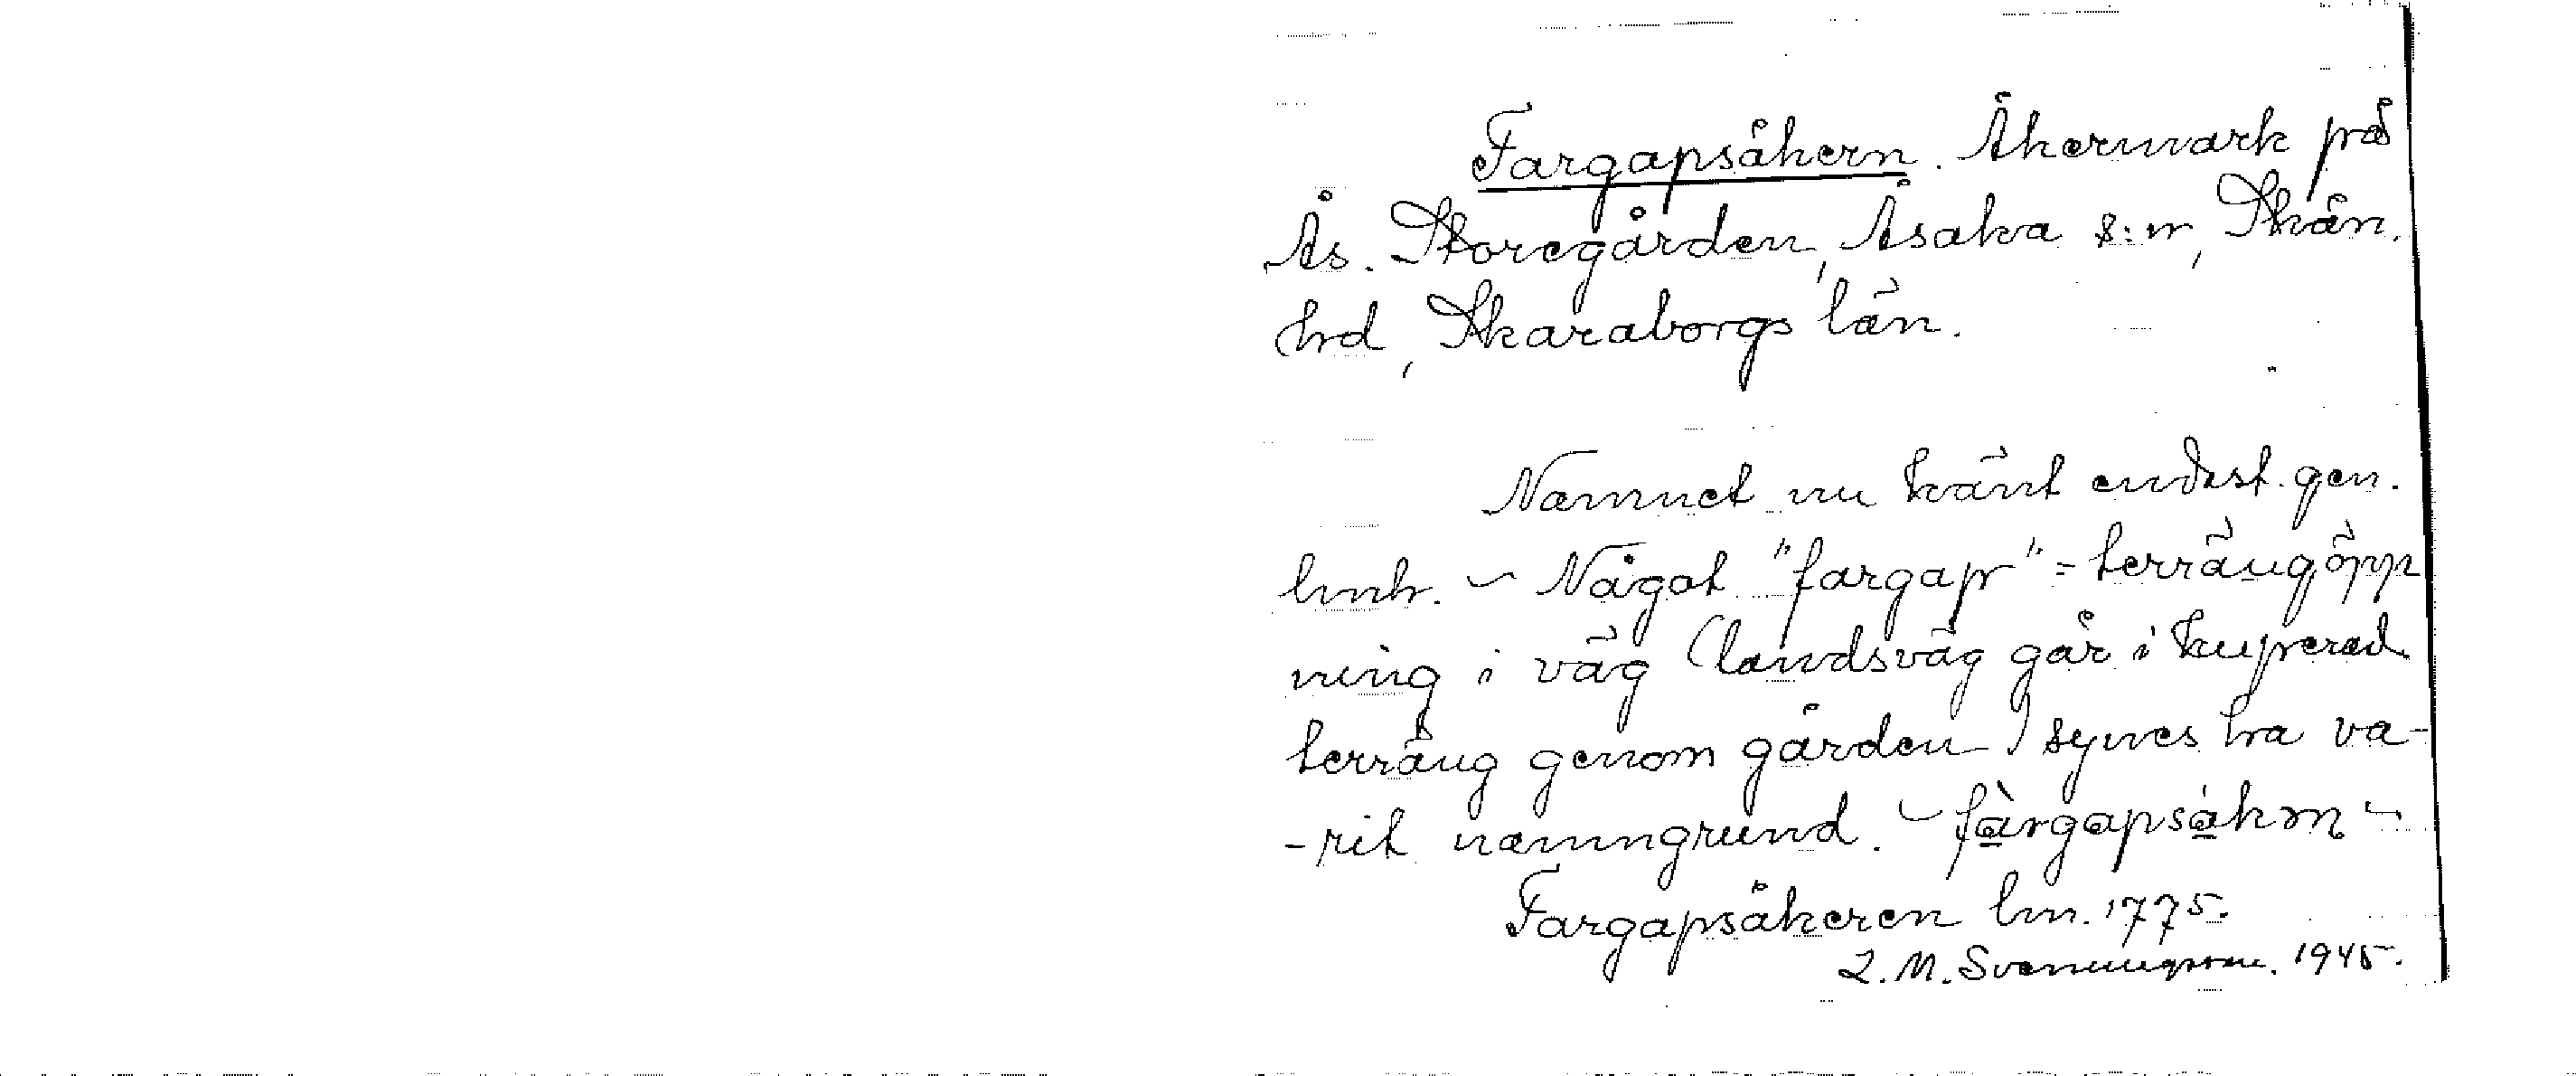 Fargapsåkern. Åkermark på
Ås. Storegården, Åsaka s:n, Skån.
hrd, Skaraborgs län.
Namnet nu känt endast gen.
lmh. – Något "fargap" = terrängöpp
ning i väg (landsväg går i kuperad
terräng genom gården) synes ha va-
-rit namngrund. – fàrgapsákm –
Fargapsåkeren lm. 1775.
L. M. Svenungsson. 1945.